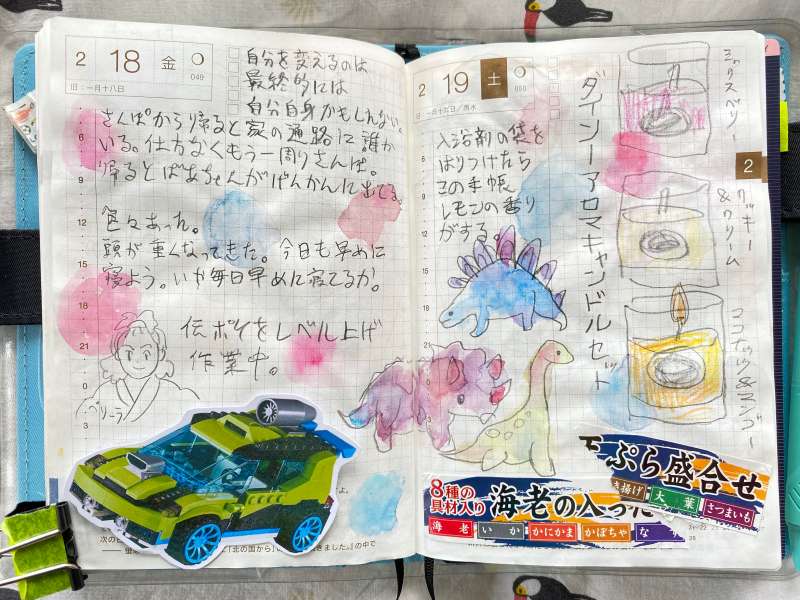 2 18 金
049
旧:一月十八日
自分を変えるのは
最終的には
自分自身かもしれない。
さんぽから帰ると家の通路に誰か
いる。仕方なくもう一周りさんぽ。
帰るとばあちゃんがげんかんに出てる。
色々あった。
頭が重くなってきた。今日も早めに
寝よう。いや毎日早めに寝てるか。
伝ポケをレベル上げ
作業中。
2 19 土
050
旧:一月十九日/雨水
入浴剤の袋を
はりつけたら
この手帳
レモンの香り
がする。
ダイソーアロマキャンドルセット
ミックスベリー
クッキー
&クリーム
ココナッツ&マンゴー
2
天ぷら盛合せ
き揚げ 大葉 さつまいも
8種の
具材入り
海老の入った
海老 いか かにかま かぼちゃ な
『北の国から』